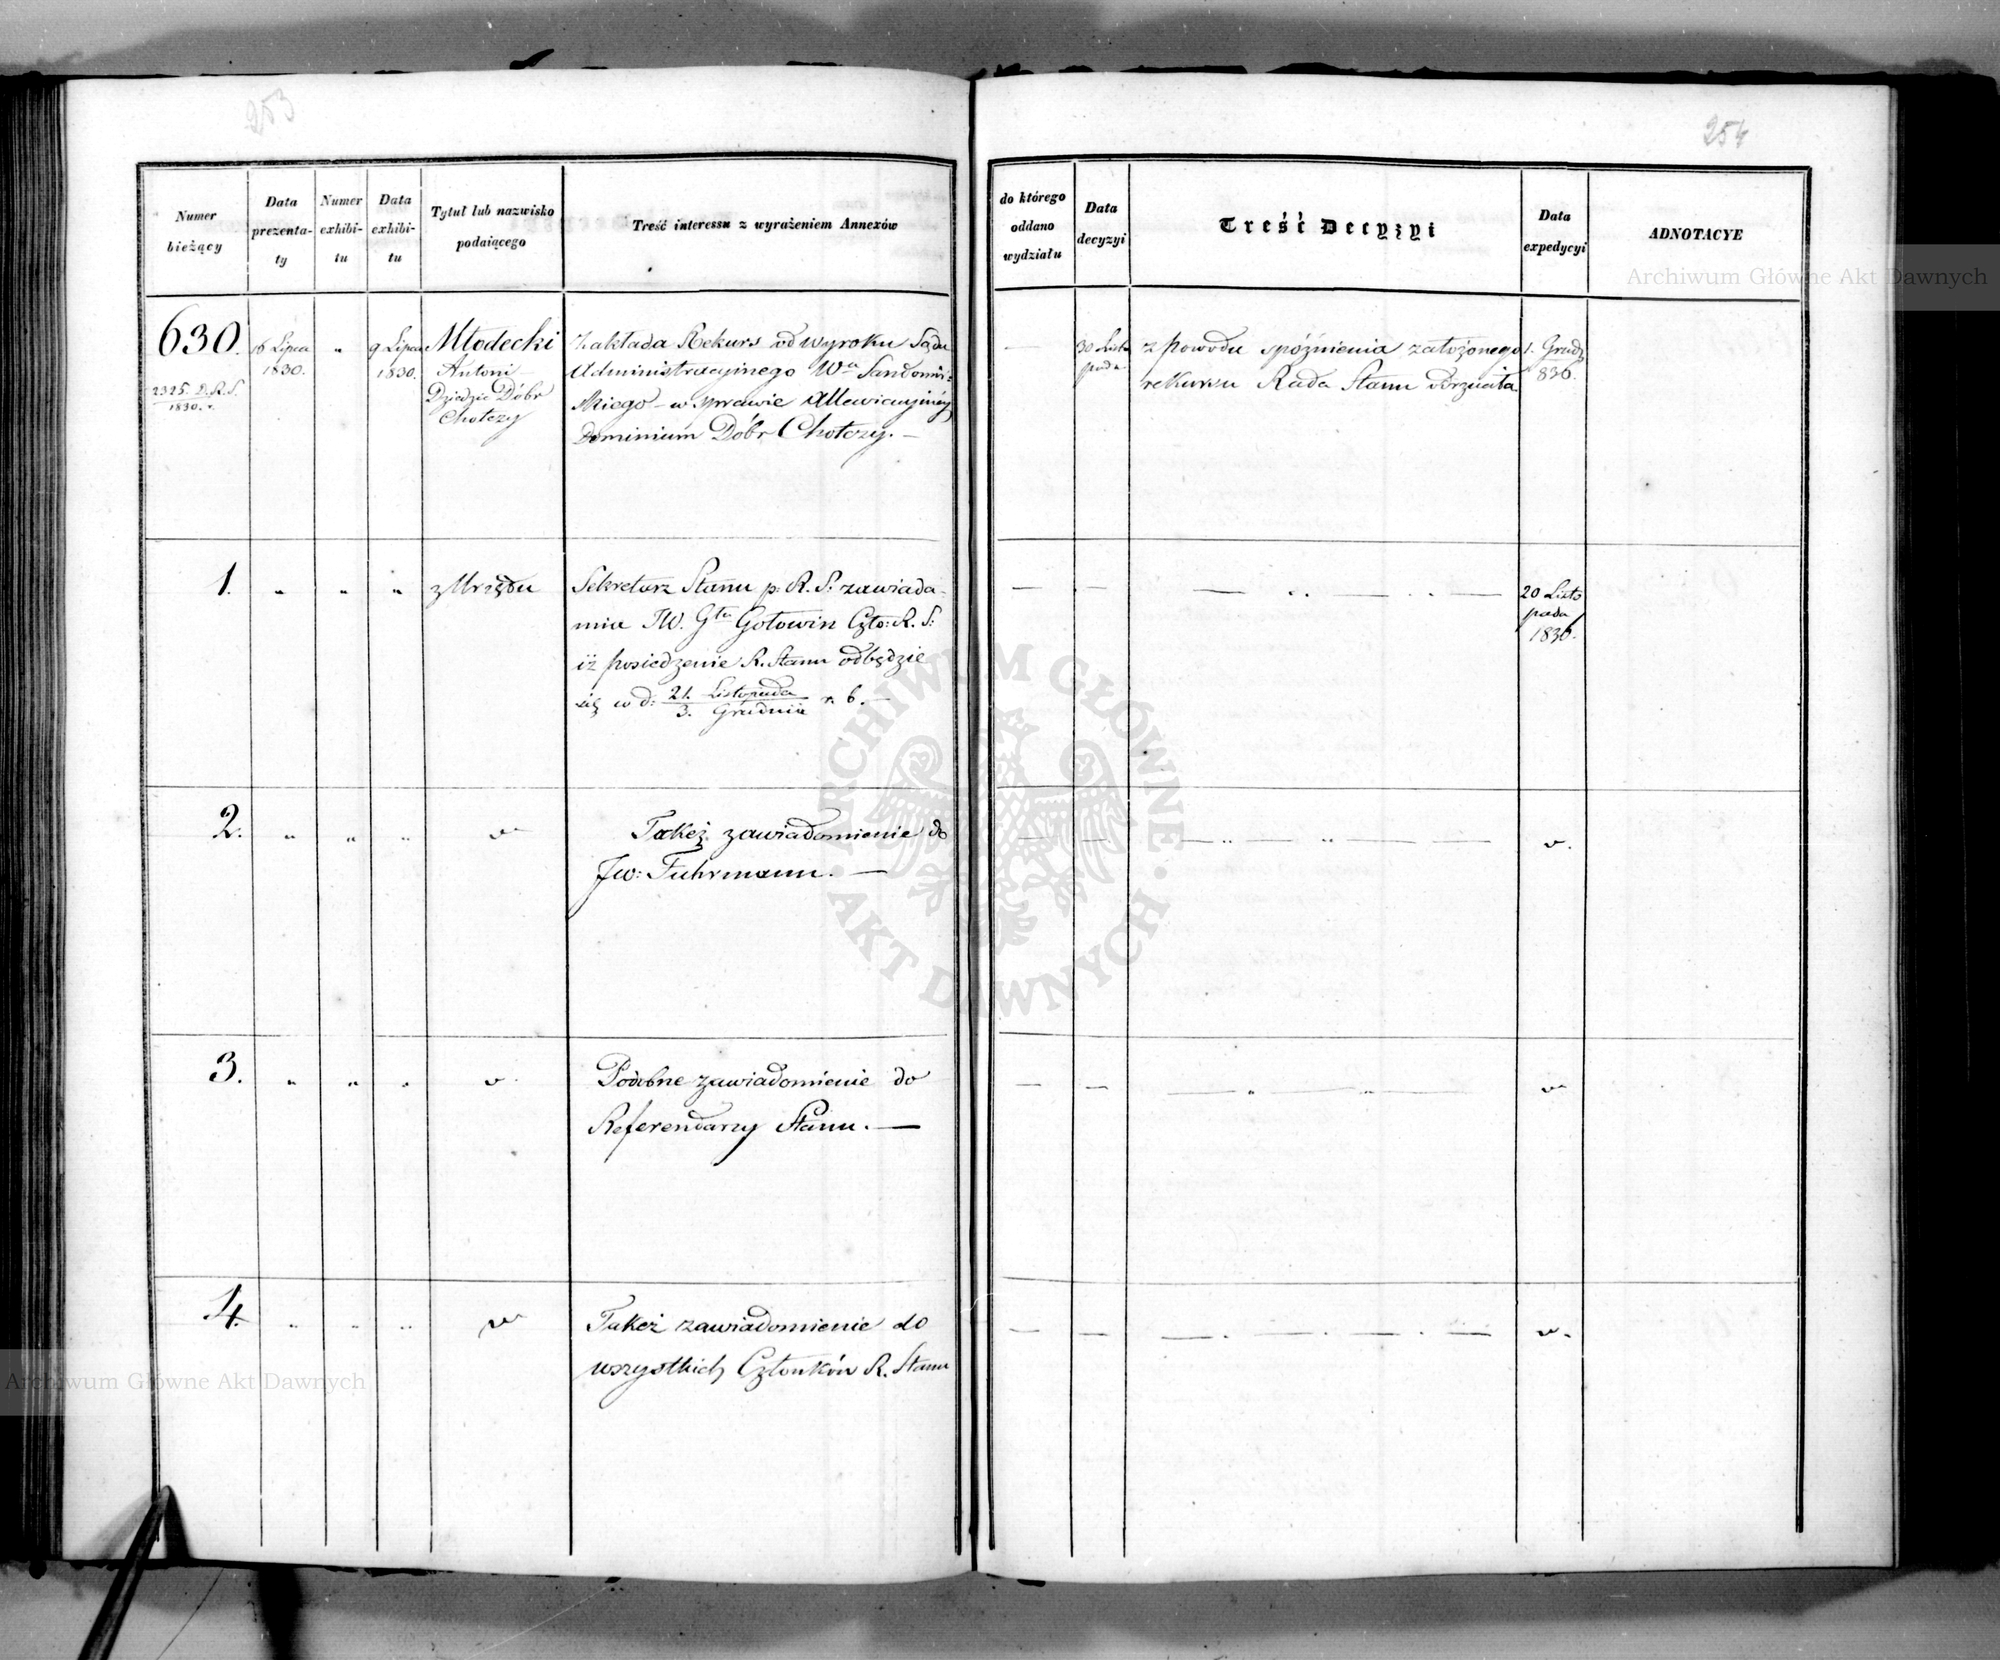 253
254
Numer
bieżący
Data
prezenta-
ty
Numer
exhibi-
tu
Data
exhibi-
tu
Tytuł lub nazwisko
podaiącego
Treść interessu z wyrażeniem Annexów
do którego
oddano
wydziału
Data
decyzyi
Treść Decyzyi
Data
expedycyi
ADNOTACYE
630.
2325. D.R.S.
1830. r.
16 Lipca
1830.
"
9 Lipca
1830.
Młodecki
Antoni
Dziedzic Dóbr
Chotczy
Zakłada Rekurs od wyroku Sądu
Administracyjnego Wa Sandomir-
skiego – w sprawie
Dominium Dóbr Chotczy. –
—
30 Listo
pada
z powodu spóźnienia założonego
rekursu Rada Stanu odrzuciła
1. Grud.
836.
1.
" " "
z Urzędu
Sekretarz Stanu p. R. S. zawiada-
mia JW. Gła Gołowin Czło: R. S:
iż posiedzenie R. Stanu odbędzie
się w d: 21. Listopada
3. Grudnia r. b. —
20 Listo
pada
1836.
2.
" " "
Takeż zawiadomienie do
Jw: Fuhrmann. —
3.
" " "
Podobne zawiadomienie do
Referendarzy Stanu. —
4.
" " "
Takeż zawiadomienie do
wszystkich Członków R. Stanu
Archiwum Główne Akt Dawnych
ARCHIWUM GŁÓWNE AKT DAWNYCH
Archiwum Główne Akt Dawnych